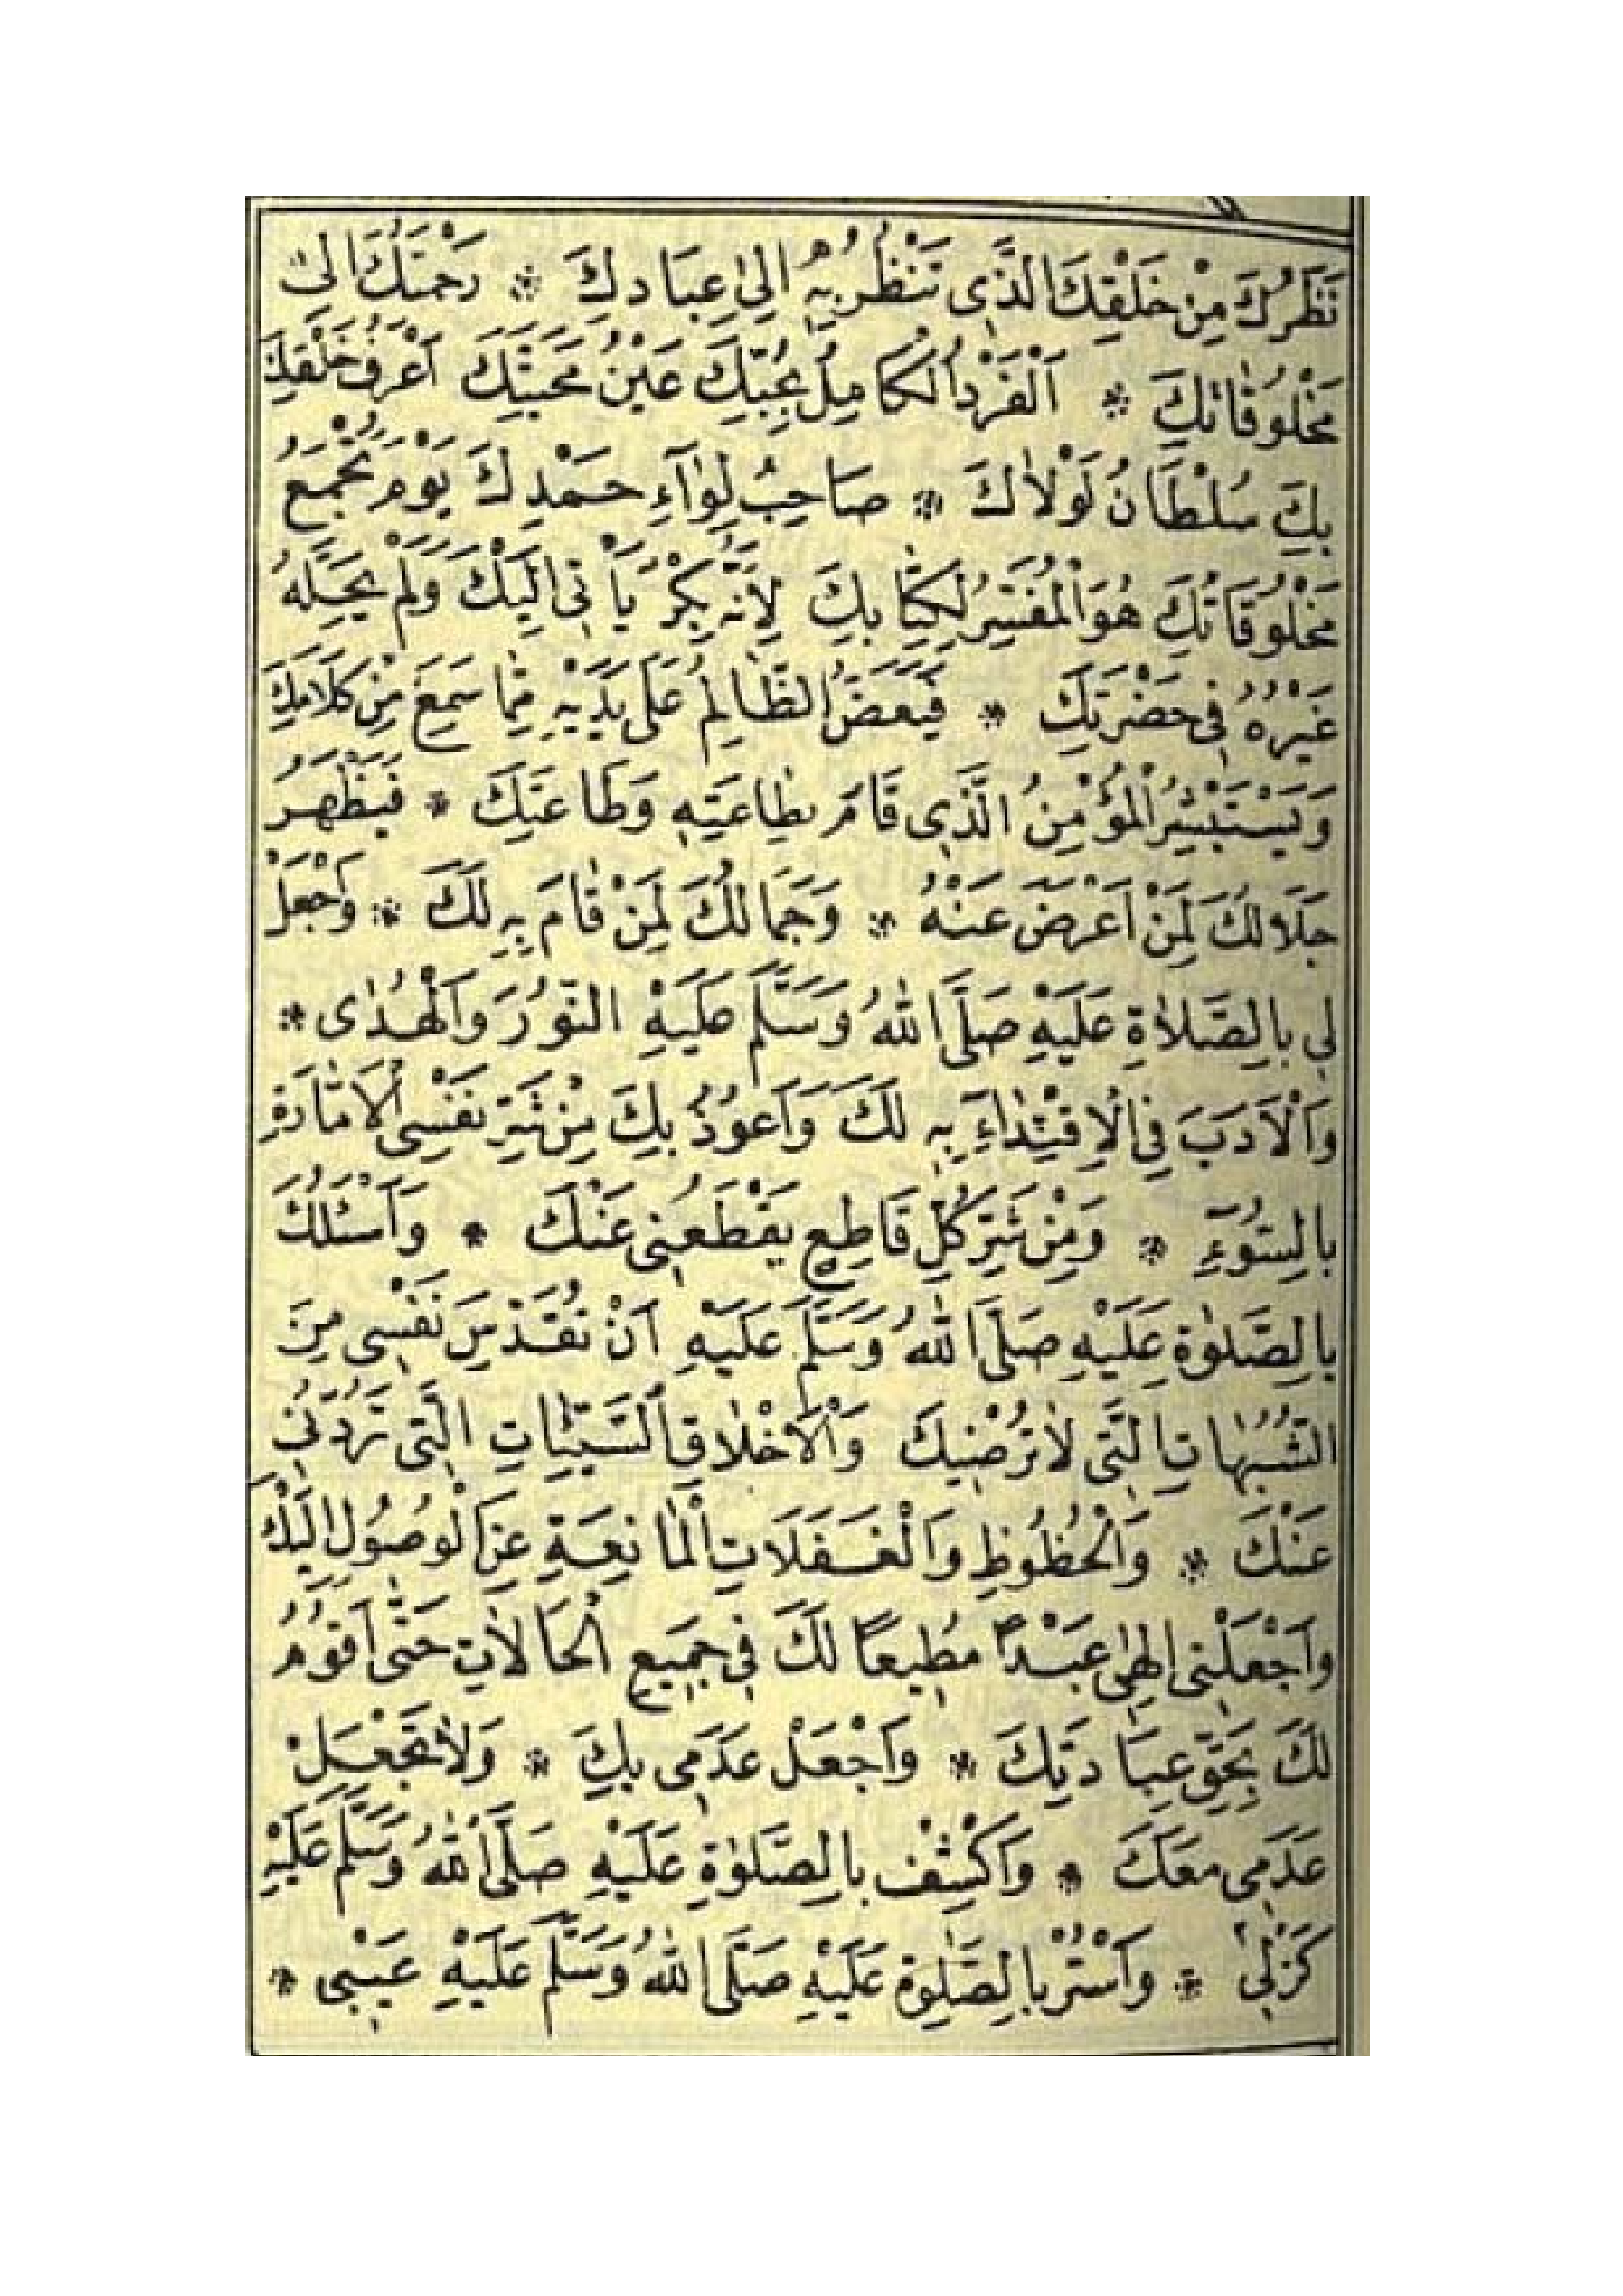 نَظَرُكَ مِنْ خَلْقِكَ الَّذِى تَنْظُرُ بِهِ اِلىٰ عِبَادِكَ * رَحْمَتُكَ اِلىٰ
مَخْلُوقَاتِكَ * اَلْفَرْدُ الْكَامِلُ بِحُبِّكَ عَيْنُ مَحَبَّتِكَ اَعْرَفُ خَلْقِكَ
بِكَ سُلْطَانُ لَوْلَاكَ * صَاحِبُ لِوَآءِ حَمْدِكَ يَوْمَ تُجْمَعُ
مَخْلُوقَاتُكَ هُوَ الْمُفَسِّرُ لِكِتَابِكَ لِاَنَّهُ بِكْرٌ يَأْتِى اِلَيْكَ وَلَمْ يَحِلَّهُ
غَيْرُهُ فِى حَضْرَتِكَ * فَيَعَضُّ الظَّالِمُ عَلىٰ يَدَيْهِ مِمَّا سَمِعَ مِنْ كَلَامِكَ
وَيَسْتَبْشِرُ الْمُؤْمِنُ الَّذِى قَامَ بِطَاعَتِهِ وَطَاعَتِكَ * فَيَظْهَرُ
جَلَالُكَ لِمَنْ اَعْرَضَ عَنْهُ * وَجَمَالُكَ لِمَنْ قَامَ بِهِ لَكَ * وَجْعَلْ
لِي بِالصَّلَاةِ عَلَيْهِ صَلَّى اللهُ وَسَلَّمَ عَلَيْهِ النُّورَ وَالْهُدٰى *
وَالْاَدَبَ فِي الْاِقْتِدَاءِ بِهِ لَكَ وَاَعُوذُ بِكَ مِنْ شَرِّ نَفْسِى الْاَمَّارَةِ
بِالسُّوءِ * وَمِنْ شَرِّ كُلِّ قَاطِعٍ يَقْطَعُنِى عَنْكَ * وَاَسْئَلُكَ
بِالصَّلٰوةِ عَلَيْهِ صَلَّى اللهُ وَسَلَّمَ عَلَيْهِ اَنْ تُقَدِّسَ نَفْسِى مِنَ
الشُّبُهَاتِ الَّتِى لَا تُرْضِيكَ وَالْاَخْلَاقِ السَّيِّئَاتِ الَّتِى تَرُدُّنِى
عَنْكَ * وَالْحُظُوظِ وَالْغَفَلَاتِ الْمَانِعَةِ عَنِ الْوُصُولِ اِلَيْكَ
وَاجْعَلْنِى اِلٰهِى عَبْدًا مُطِيعًا لَكَ فِى جَمِيعِ الْحَالَاتِ حَتّٰى اَقُومُ
لَكَ بِحَقِّ عِبَادَتِكَ * وَاجْعَلْ عَدَمِى بِكَ * وَلَا تَجْعَلْ
عَدَمِى مَعَكَ * وَاكْشِفْ بِالصَّلٰوةِ عَلَيْهِ صَلَّى اللهُ وَسَلَّمَ عَلَيْهِ
كَنْزِلِى * وَاسْتُرْ بِالصَّلٰوةِ عَلَيْهِ صَلَّى اللهُ وَسَلَّمَ عَلَيْهِ عَيْبِى *